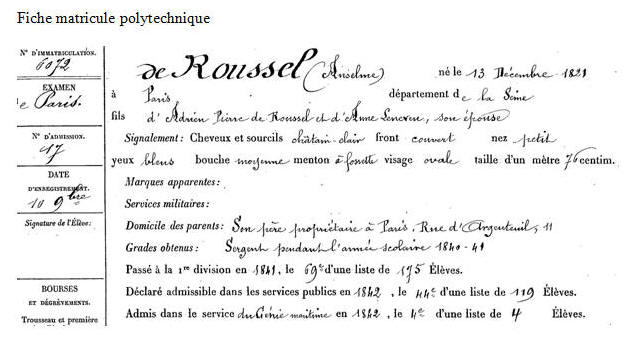 Fiche matricule polytechnique
N° D'IMMATRICULATION.
6072
EXAMEN
de Paris.
N° D'ADMISSION.
17
DATE
D'ENREGISTREMENT.
10 9bre
Signature de l'Élève:
BOURSES
ET DÉGRÈVEMENTS.
Trousseau et première
de Roussel (Anselme) né le 13 Décembre 1821
à Paris département de la Seine
fils d'Adrien Pierre de Roussel et d'Anne Lencveu, son épouse
Signalement: Cheveux et sourcils châtain-clair front couvert nez petit
yeux bleus bouche moyenne menton à fossette visage ovale taille d'un mètre 76 centim.
Marques apparentes:
Services militaires:
Domicile des parents: Son père propriétaire à Paris, Rue d'Argenteuil, 11
Grades obtenus: Sergent pendant l'année scolaire 1840-41
Passé à la 1re division en 1841, le 69e d'une liste de 175 Élèves.
Déclaré admissible dans les services publics en 1842, le 44e d'une liste de 119 Élèves.
Admis dans le service du Génie maritime en 1842, le 4e d'une liste de 4 Élèves.